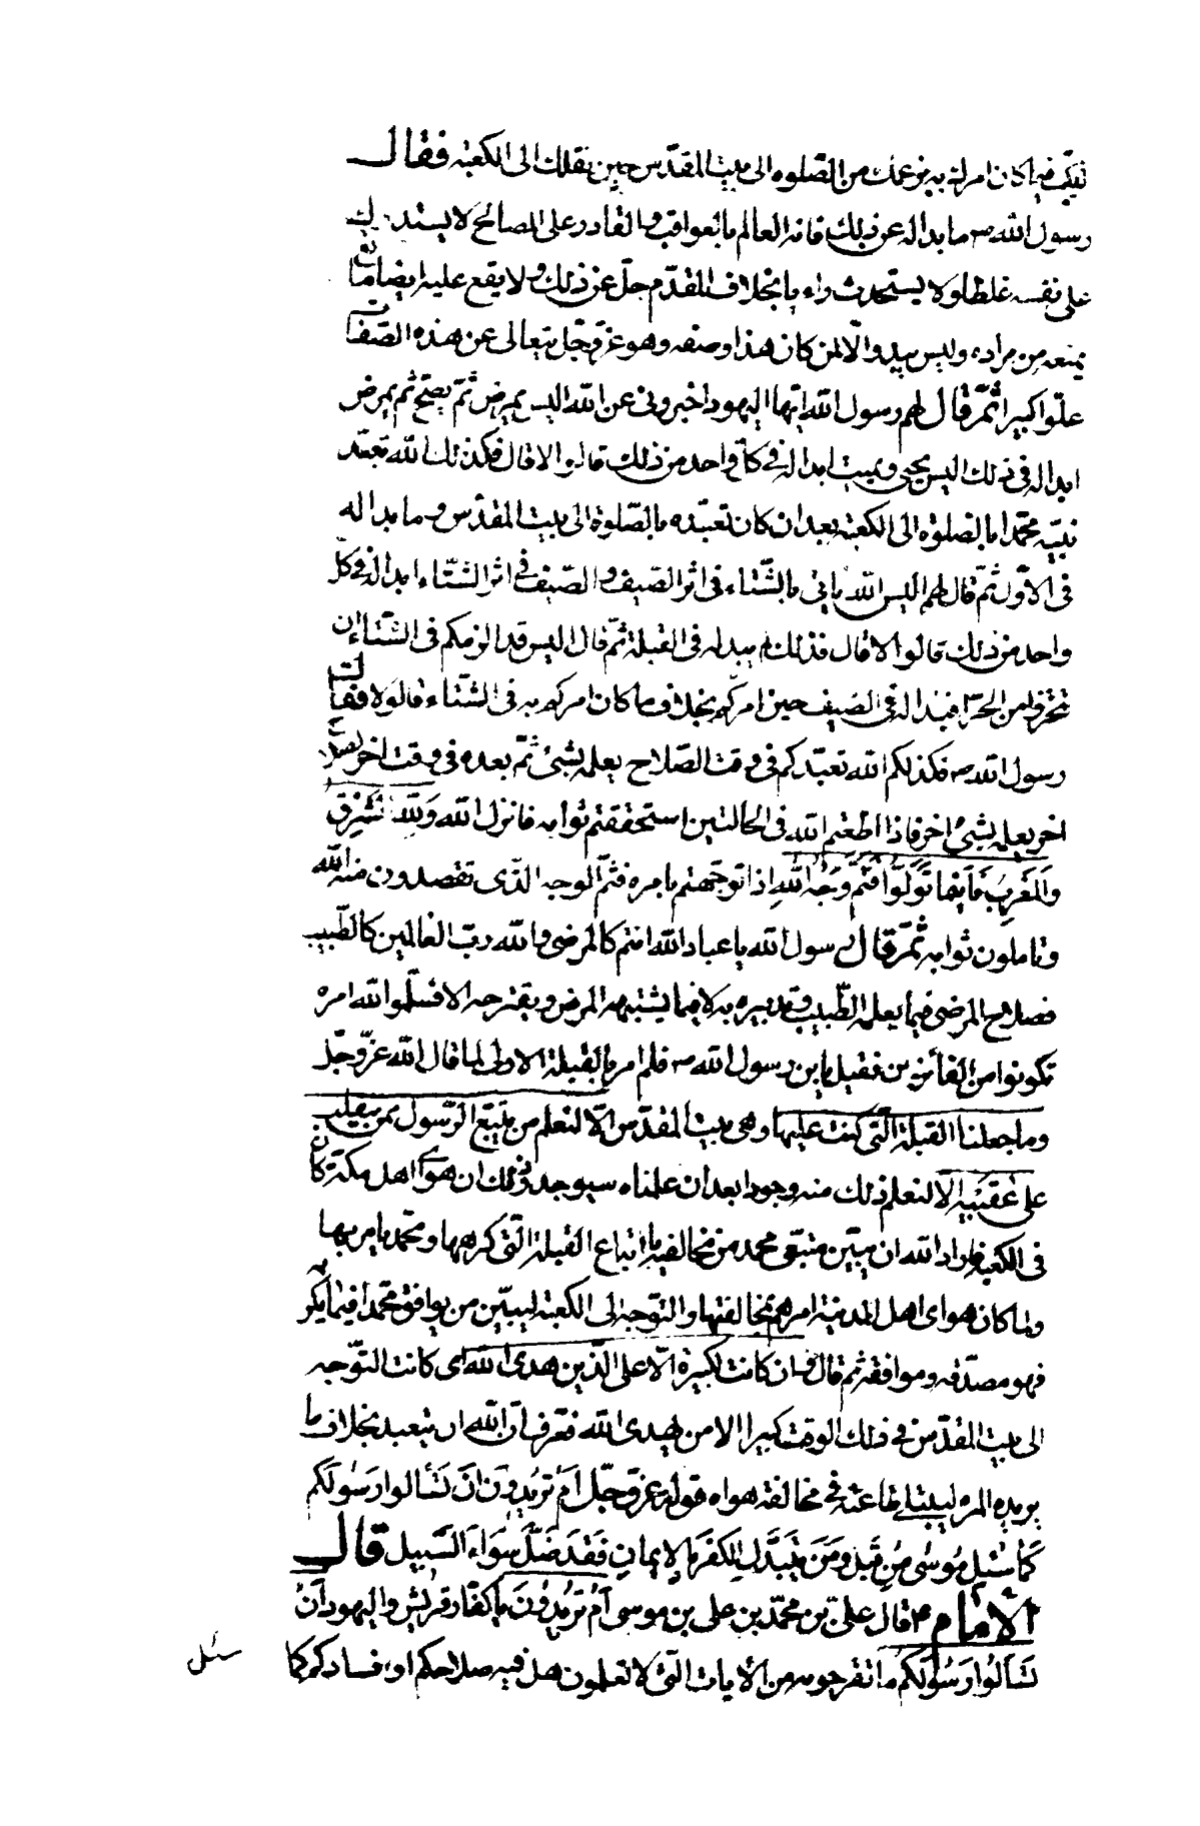 فكيف فيما كان امر له به بزعمك من الصّلوه الى بيت المقدّس حين نقلك الى الكعبة فقال
رسول الله ص ما بدا له عن ذلك فانه العالم بالعواقب والقادر على المصالح لا يستدرك
على نفسه غلطا ولا يستحدث رايا بخلاف المتقدّم جلّ عن ذلك ولا يقع عليه ايضا مانع
يمنعه من مراده وليس يبدو الّا لمن كان هذا وصفه وهو عزّ وجلّ يتعالى عن هذه الصّفات
علوّا كبيرا ثمّ قال لهم رسول الله ايّها اليهود اخبرونى عن الله اليس يمرض ثمّ يصّح ثم يمرض
ابدا له فى ذلك اليس يحيى ويميت ابدا له فى كلّ واحد من ذلك قالوا لا قال فكذلك الله تعبّد
نبيّه محمّدا بالصلوة الى الكعبة بعد ان كان تعبّده بالصّلوة الى بيت المقدّس وما بدا له
فى الاوّل ثمّ قال لهم اليس الله ياتى بالشّتاء فى اثر الصّيف والصّيف فى اثر الشّتاء ابدا له فى كلّ
واحد من ذلك قالوا لا قال فذلك لم يبد له فى القبلة ثمّ قال اليس قد الزمكم فى الشّتاء ان
تحترزوا من الحرّ افبدا له فى الصّيف حين امركم بخلاف ما كان امركم به فى الشّتاء قالوا لا فقال
رسول الله ص فكذلكم الله تعبّدكم فى وقت الصّلاح يعلمه بشئ ثمّ بعده فى وقت اخر لصلاح
اخر يعلمه بشئ اخر فاذا اطعتم الله فى الحالتين استحققتم ثوابه فانزل الله وَلِلّهِ الْمَشْرِقُ
وَالْمَغْرِبُ فَاَيْنَمَا تُوَلُّوا فَثَمَّ وَجْهُ اللهِ اذا توجّهتم بامره فثمّ الوجه الذّى تقصدون منه الله
وتاملون ثوابه ثمّ قال رسول الله يا عباد الله انتم كالمرضى والله ربّ العالمين كالطّبيب
فصلاح المرضى فيما يعلمه الطّبيب وتدبيره به لا فيما يشتهيه المرض ويقترحه الا فسلّموا لله امره
تكونوا من الفائزين فقيل يابن رسول الله ص فلم امر بالقبلة الاولى لما قال الله عزّ وجلّ
وما جعلنا القبلة الّتى كنت عليها وهى بيت المقدّس الّا لنعلم من يتّبع الرّسول ممن ينقلب
على عَقِبَيْهِ الّا لنعلم ذلك منه وجودا بعد ان علمناه سيوجد وذلك ان هوى اهل مكة كان
فى الكعبة فاراد الله ان يبيّن متبعى محمد من مخالفيه باتباع القبلة الّتى كرهها ومحمّد يامر بها
ولما كان هوى اهل المدينة امرهم بمخالفتها والتوجه الى الكعبة ليبيّن من يوافق محمّدا فيما يكره
فهو مصدّقه وموافقه ثم قال وان كانت لكبيرة الّا على الّذين هدى الله اى كانت التّوجه
الى بيت المقدّس فى ذلك الوقت كبيرا الا من يهدى الله فعرف انّ الله ان يتعبد بخلاف ما
يريده المرء ليبتلى طاعته فى مخالفة هواه قوله عزّ وجلّ اَمْ تُريدُونَ اَنْ تَسْاَلوا رَسُولَكُم
كَمَا سُئِلَ مُوسى مِنْ قَبْلُ وَمَنْ يَتَبَدَّلِ الكُفْرَ بِالإيمانِ فَقَدْ ضَلَّ سَوَاءَ السَّبيل قال
الامام ع قال علىّ بن محمّد بن على بن موسى اَمْ تُريْدُوْنَ يا كفّار قريش واليهود اَنْ
تَسْاَلُوا رَسُوْلَكُمْ ما تقترحونه من الآيات التّى لا تعلمون هل فيه صلاحكم او فسادكم كما
سئل